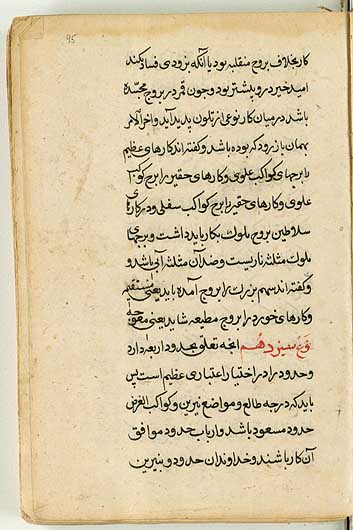 95
کار بخلاف بروج منقلبه بود با آنکه بزودی فساد کند
امید خیر درو بیشتر بود و چون قمر در بروج مجسده
باشد در میان کار نوعی از تلون پدید آید و آخر الامر
بهمان بازرود که بوده باشد و گفته‌اند کارهای عظیم
را برجهای کواکب علوی و کارهای حقیر را برج کواکب
علوی و کارهای حقیر را برج کواکب سفلی و در کارهای
سلاطین بروج ملوک بکار باید داشت و برجهای
ملوک مثلثه ناریست و ضد آن مثلثه آبی باشد و
و گفته‌اند سهم بزرگ را بروج آمده باید یعنی مستقیمه
و کارهای خورد را بروج مطیعه شاید یعنی معوجه
نوع سیزدهم آنچه تعلق بحدود اربعه دارد
و حدود را در اختیار اعتباری عظیم است پس
باید که درجه طالع و مواضع نیرین و کواکب الغرض
حدود مسعود باشد و ارباب حدود موافق
آن کار باشند و خداوندان حدود و بنیرین